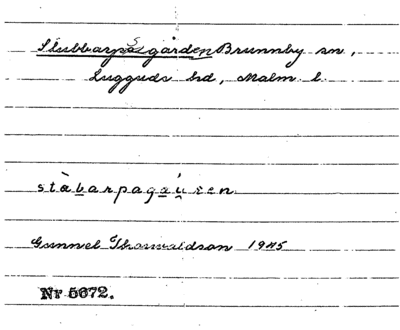 Stubbarpsgården Brunnby sn,
Luggude hd, Malm. l.
stàbarpagáu̯ɛen
Gunnel Thorvaldson 1945
Nr 5672.